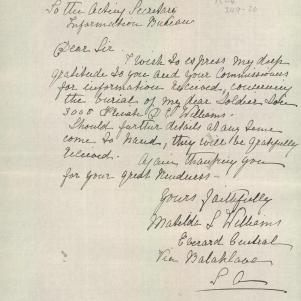 To the Acting Secretary
Information Bureau
Dear Sir.
I wish to express my deep
gratitude to you and your Commissioners
for information received, concerning
the burial of my dear Soldier Son
3000 Private Williams.
Should further details at any time
come to hand, they will be gratefully
received. Again thanking you
for your great kindness.
Yours faithfully
Matilda S Williams
Everard Central
Via Balaklava
S A